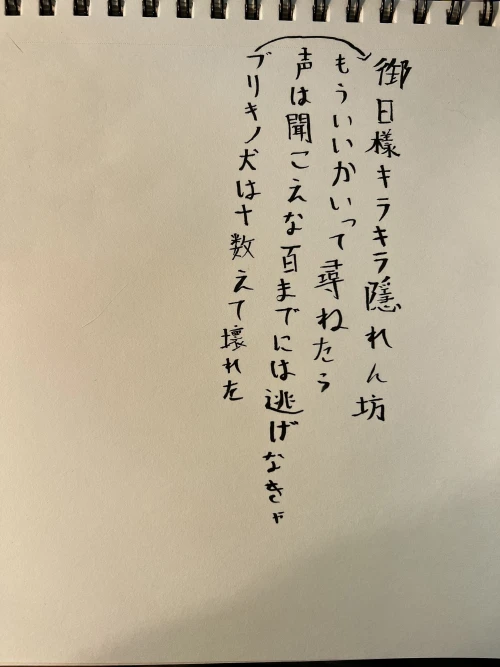 御日様キラキラ隠れん坊
もういいかいって尋ねたら
声は聞こえな百までには逃げなきゃ
ブリキノ犬は十数えて壊れた